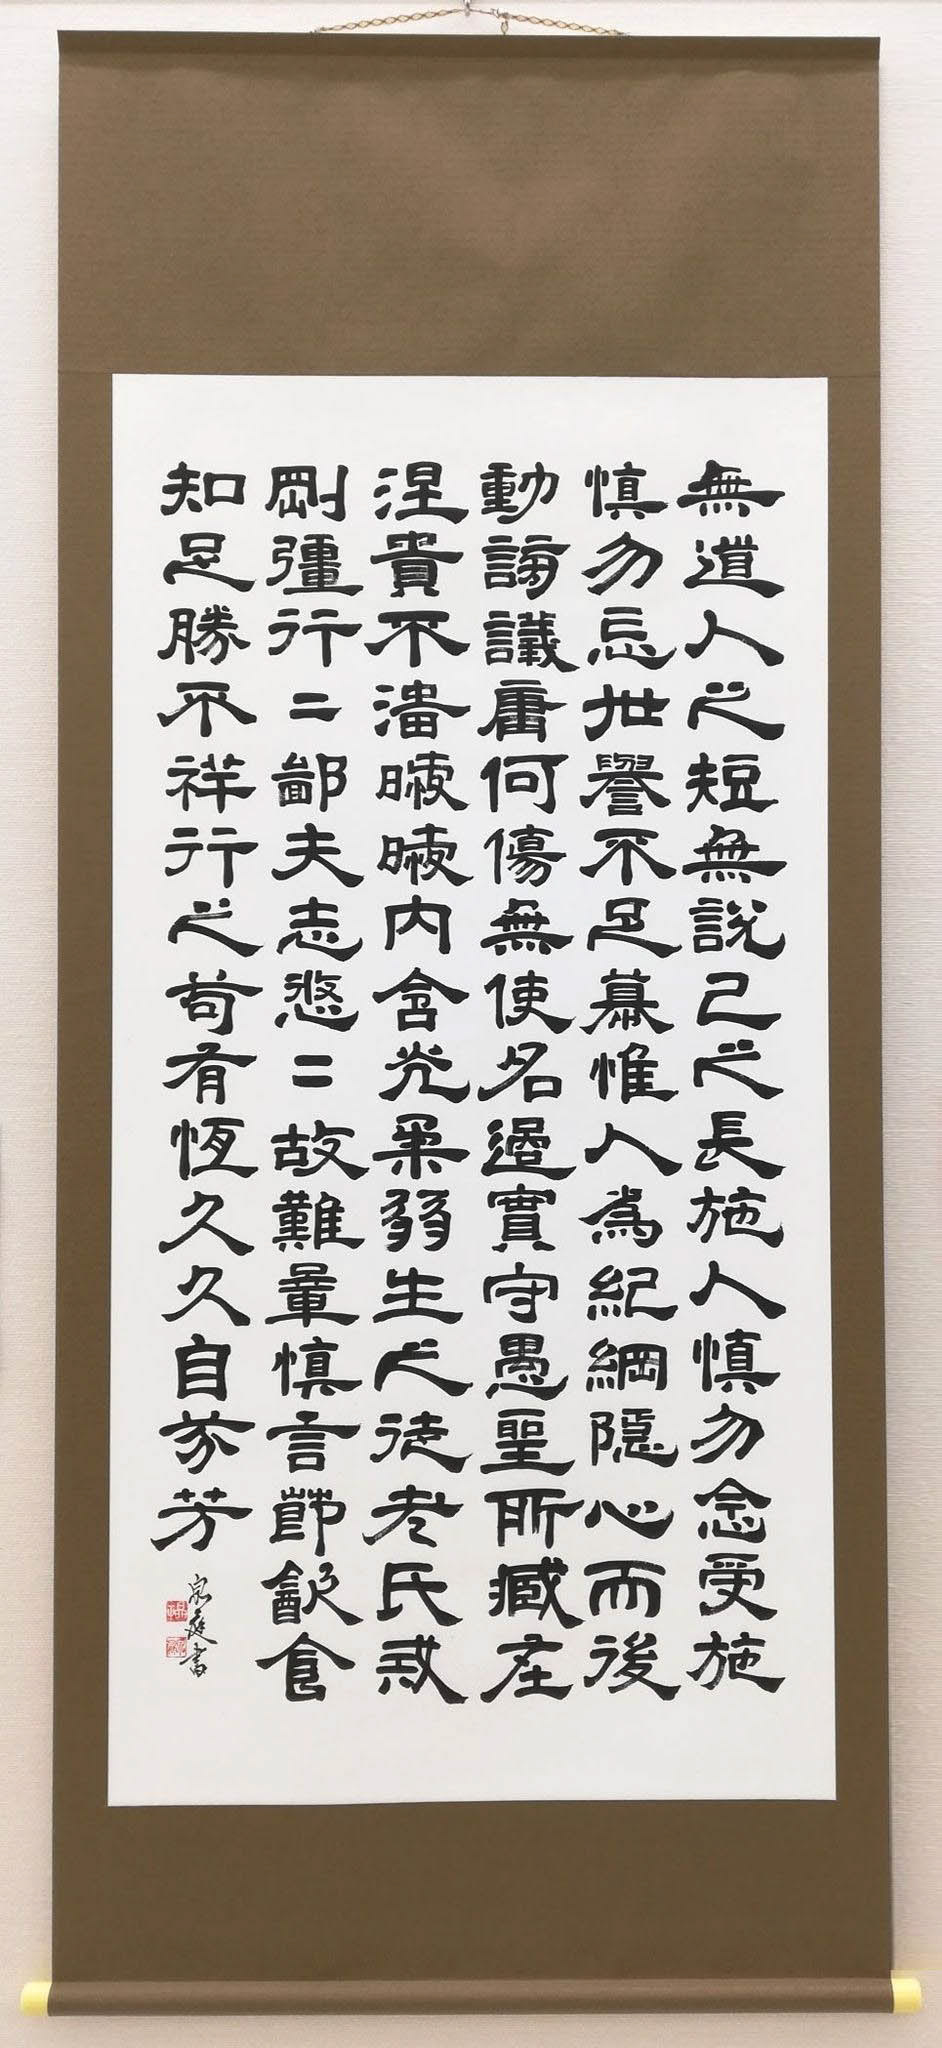 無道人之短無說己之長施人慎勿念受施
慎勿忘世譽不足慕惟人為紀綱隱心而後
動謗議庸何傷無使名過實守愚聖所臧在
涅貴不淄曖曖內含光柔弱生之徒老氏戒
剛彊行二鄙夫志悠二故難量慎言節飲食
知足勝不祥行之苟有恆久久自芬芳
泉庭書